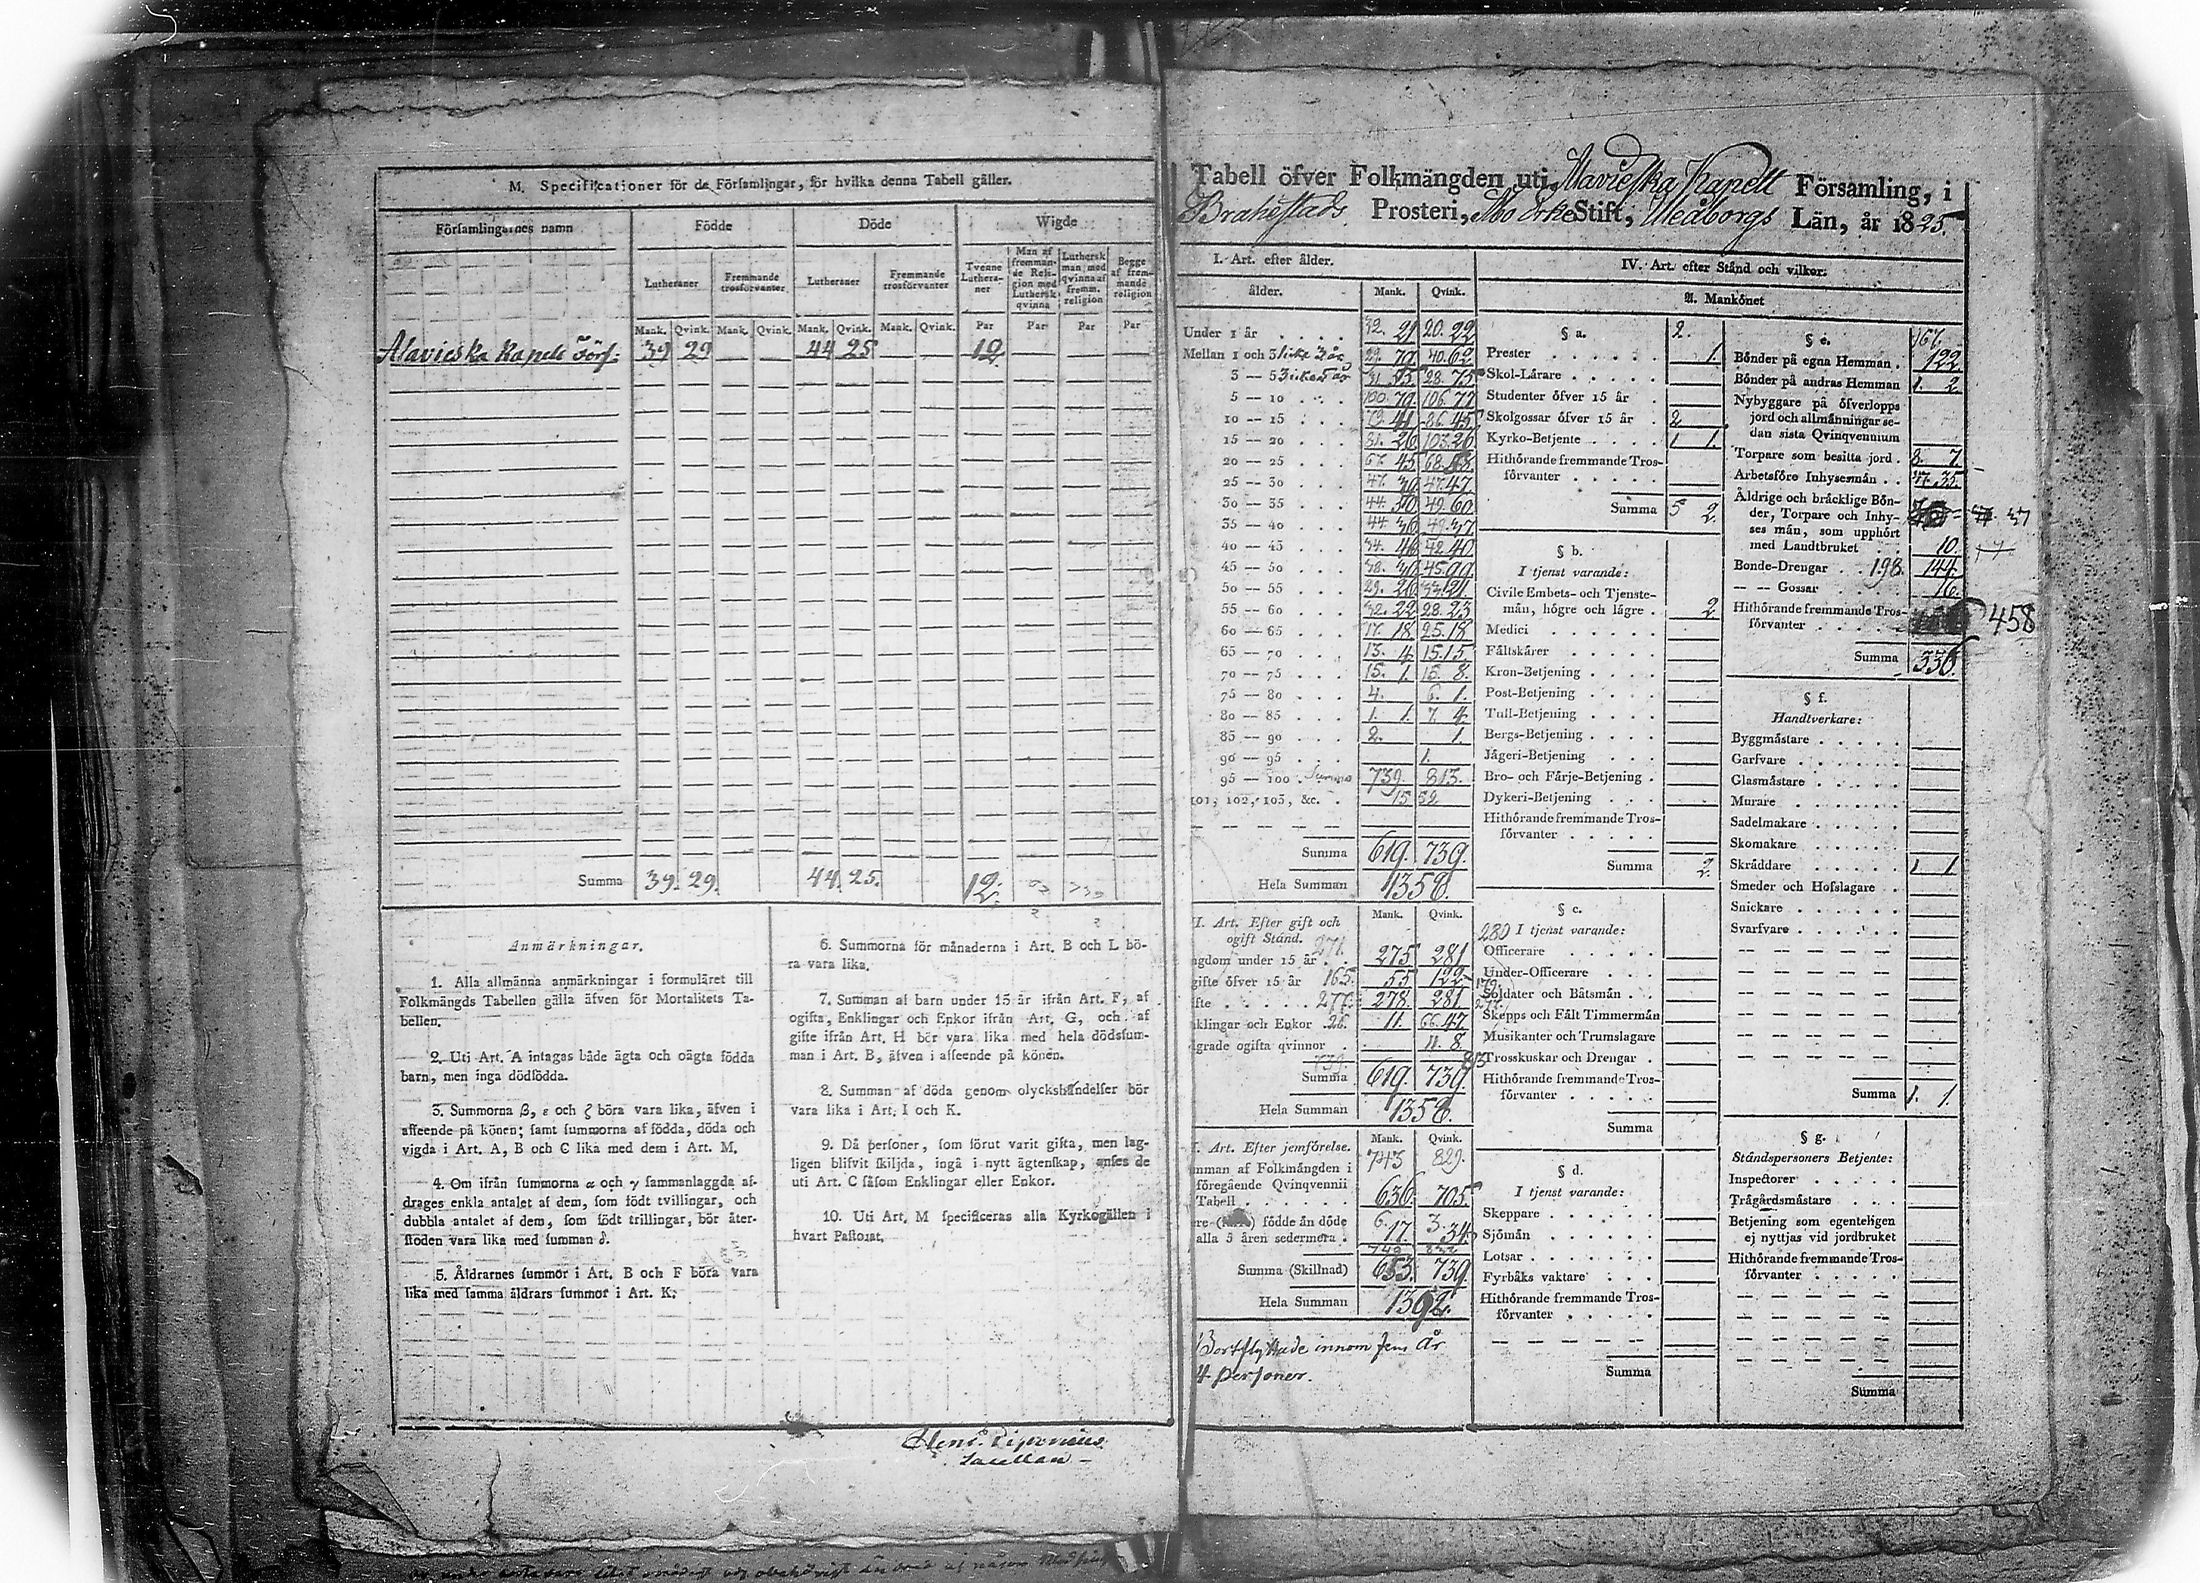 M. Specificationer för de Församlingar, för hvilka denna Tabell gäller.
Församlingarnes namn
Födde
Döde
Wigde
Lutheraner
Fremmande trosförvanter
Lutheraner
Fremmande trosförvanter
Tvenne Lutheraner
Man af fremmande Religion med Luthersk qvinna
Luthersk man med qvinna af fremm. religion
Begge af fremmande religion
Mank. Qvink. Mank. Qvink. Mank. Qvink. Mank. Qvink. Par Par Par Par
Alavieska Kapells Förs: 39 29 44 25 12
Summa 39. 29. 44 25. 12.
Anmärkningar.
1. Alla allmänna anmärkningar i formuläret till
Folkmängds Tabellen gälla äfven för Mortalitets Ta-
bellen.
2. Uti Art. A intagas både ägta och oägta födda
barn, men inga dödfödda.
3. Summorna β, ε och ζ böra vara lika, äfven i
afseende på könen; samt summorna af födda, döda och
vigda i Art. A, B och C lika med dem i Art. M.
4. Om ifrån summorna α och γ sammanlaggda af-
drages enkla antalet af dem, som födt tvillingar, och
dubbla antalet af dem, som födt trillingar, bör åter-
stoden vara lika med summan δ.
5. Åldrarnes summor i Art. B och F böra vara
lika med samma åldrars summor i Art. K.
6. Summorna för månaderna i Art. B och L bö-
ra vara lika.
7. Summan af barn under 15 år ifrån Art. F, af
ogifta, Enklingar och Enkor ifrån Art. G, och af
gifte ifrån Art. H bör vara lika med hela dödssum-
man i Art. B, äfven i afseende på könen.
8. Summan af döda genom olyckshändelser bör
vara lika i Art. I och K.
9. Då personer, som förut varit gifta, men lag-
ligen blifvit skiljda, ingå i nytt ägtenskap, anses de
uti Art. C såsom Enklingar eller Enkor.
10. Uti Art. M specificeras alla Kyrkogällen i
hvart Pastorat.
Tabell öfver Folkmängden uti Alavieska Kapell Församling, i
Brahestads Prosteri, Åbo ErkeStift, Uleåborgs Län, år 1825.
I. Art. efter ålder.
ålder. Mank. Qvink.
Under 1 år 32. 21 20. 22
Mellan 1 och 3
3 — 5 28. 75
5 — 10 100. 79 106. 77
10 — 15 86. 45
15 — 20 81. 26 103. 26
20 — 25 67. 45 68.
25 — 30 47. 36 47. 47
30 — 35 44. 30 49. 60
35 — 40 44. 36 49. 37
40 — 45 34. 46 42 40
45 — 50 38. 30 45.
50 — 55 29. 26 33. 21
55 — 60 32. 22 28. 23
60 — 65 17. 18 25. 18
65 — 70 13. 4 15. 15
70 — 75 15. 1. 15. 8.
75 — 80 4. 6. 1.
80 — 85 1. 1. 7. 4.
85 — 90 2. 1.
90 — 95 1.
95 — 100 Summa 739. 813.
101, 102, 103, &c.
Summa 619. 739.
Hela Summan 1358.
Mank. Qvink.
II. Art. Efter gift och
ogift Stånd. 271.
ngdom under 15 år 275 281
gifte öfver 15 år 165. 55 122
ifte 277. 278. 281
nklingar och Enkor 26. 11. 66. 47
grade ogifta qvinnor 11. 8
739.
Summa 619. 739.
Hela Summan 1358.
Art. Efter jemförelse. Mank. Qvink.
743 829.
mman af Folkmängden i
föregående Qvinqvennii
Tabell 636. 705.
födde än döde 6. 3.
alla 5 åren sedermera 17. 34.
Summa (Skillnad) 653. 739.
Hela Summan 1392.
Bortflyttade innom fem år
4 personer.
IV. Art. efter Stånd och vilkor.
A. Mankönet
§ a. 2.
Prester 1.
Skol-Lärare
Studenter öfver 15 år
Skolgossar öfver 15 år 2
Kyrko-Betjente 1 1.
Hithörande fremmande Tros-
förvanter
Summa 5 2.
§ b.
I tjenst varande:
Civile Embets- och Tjenste-
män, högre och lägre 2.
Medici
Fältskärer
Kron-Betjening
Post-Betjening
Tull-Betjening
Bergs-Betjening
Jägeri-Betjening
Bro- och Färje-Betjening
Dykeri-Betjening
Hithörande fremmande Tros-
förvanter
Summa 2.
§ c.
280 I tjenst varande:
Officerare
Under-Officerare
Soldater och Båtsmän
Skepps och Fält Timmermän
Musikanter och Trumslagare
Trosskuskar och Drengar
Hithörande fremmande Tros-
förvanter
Summa
§ d.
I tjenst varande:
Skeppare
Sjömän
Lotsar
Fyrbåks vaktare
Hithörande fremmande Tros-
förvanter
Summa
§ e. 167.
Bönder på egna Hemman 122.
Bönder på andras Hemman 1. 2
Nybyggare på öfverlopps
jord och allmänningar se-
dan sista Qvinqvennium
Torpare som besitta jord 8. 7.
Arbetsföre Inhysesmän 47. 35.
Åldrige och bräcklige Bön-
der, Torpare och Inhy- 37
ses män, som upphört
med Landtbruket 10.
Bonde-Drengar 198. 144.
— — Gossar 16.
Hithörande fremmande Tros-
förvanter 458
Summa 336.
§ f.
Handtverkare:
Byggmästare
Garfvare
Glasmästare
Murare
Sadelmakare
Skomakare
Skräddare 1 1
Smeder och Hofslagare
Snickare
Svarfvare
Summa 1. 1.
§ g.
Ståndspersoners Betjente:
Inspector
Trågårdsmästare
Betjening som egenteligen
ej nyttjas vid jordbruket
Hithörande fremmande Tros-
förvanter
Summa